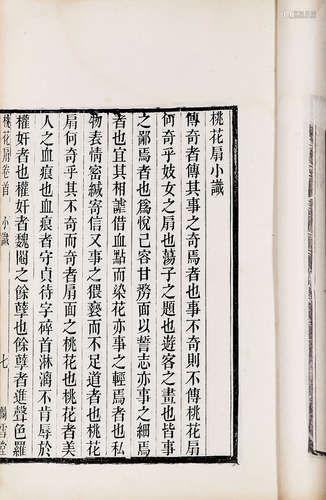 桃花扇小識
傳奇者傳其事之奇焉者也事不奇則不傳桃花扇
何奇乎妓女之扇也蕩子之題也遊客之畫也皆事
之鄙焉者也爲悅己容甘剺面以誓志亦事之細焉
者也宜其相謔借血點而染花亦事之輕焉者也私
物表情密緘寄信又事之猥褻而不足道者也桃花
扇何奇乎其不奇而奇者扇面之桃花也桃花者美
人之血痕也血痕者守貞待字碎首淋漓不肯辱於
權奸者也權奸者魏閹之餘孽也餘孽者進聲色羅
桃花扇卷首 小識 七 蘭雪堂